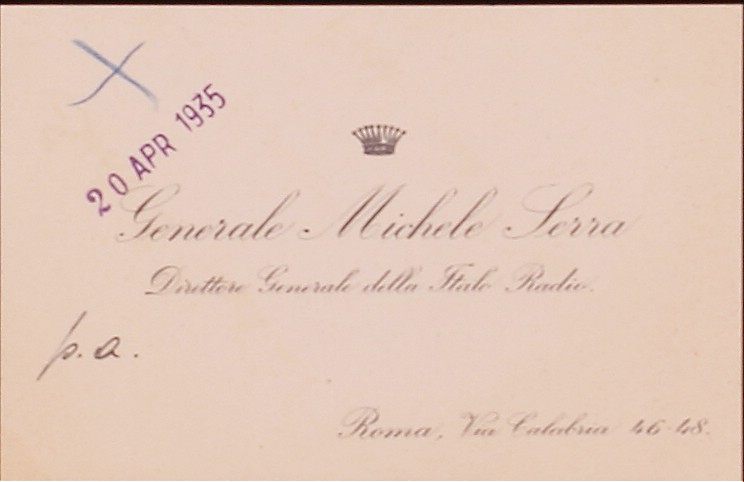 20 APR 1935
Generale Michele Serra
Direttore Generale della Italo Radio.
p. a.
Roma, Via Calabria 46-48.